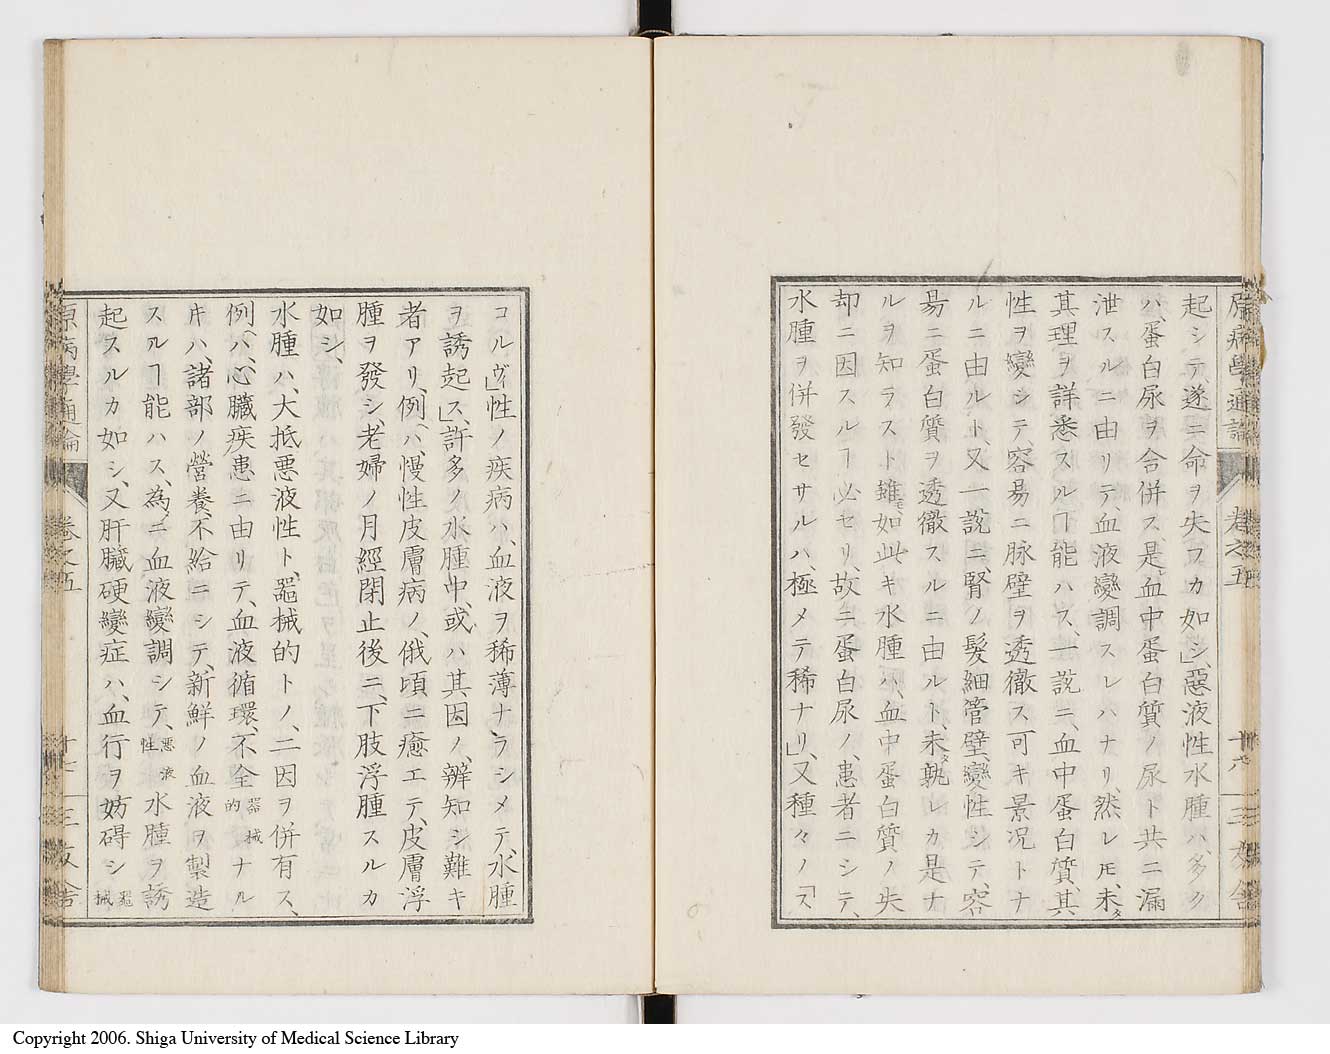 原病學通論 卷之五 十八 三友舍
起シテ、遂ニ命ヲ失フカ如シ」、惡液性水腫ハ、多ク
ハ、蛋白尿ヲ含併ス、是レ血中蛋白質ノ尿ト共ニ漏
泄スルニ由リテ、血液變調スレハナリ、然レ𪜈、未タ
其理ヲ詳悉スルヿ能ハス、一說ニ、血中蛋白質、其
性ヲ變シテ、容易ニ脉壁ヲ透徹ス可キ景況トナ
ルニ由ルト、又一說ニ、腎ノ髮細管壁、變性シテ、容
昜ニ蛋白質ヲ透徹スルニ由ルト、未タ孰レカ是ナ
ルヲ知ラスト雖モ、如此キ水腫ハ、血中蛋白質ノ失
却ニ因スルヿ必セリ、故ニ蛋白尿ノ、患者ニシテ、
水腫ヲ併發セサルハ、極メテ稀ナリ」、又種々ノ「ス
コルヴィ」性ノ疾病ハ、血液ヲ稀薄ナラシメテ、水腫
ヲ誘起ス」、許多ノ水腫中、或ハ其因ノ、辨知シ難キ
者アリ、例ヘハ、慢性皮膚病ノ、俄頃ニ癒エテ、皮膚浮
腫ヲ發シ、老婦ノ月經閉止後ニ、下肢浮腫スルカ
如シ、
水腫ハ、大抵惡液性ト、器械的トノ、二因ヲ併有ス、
例ヘハ、心臟疾患ニ由リテ、血液循環、不全器械的ナル
𪜈ハ、諸部ノ營養、不給ニシテ、新鮮ノ血液ヲ製造
スルヿ能ハス、為ニ血液變調シテ、惡液性水腫ヲ誘
起スルカ如シ、又肝臟硬變症ハ、血行ヲ妨碍シ器械
原病學通論 卷之五 十七 三友舍
Copyright 2006. Shiga University of Medical Science Library